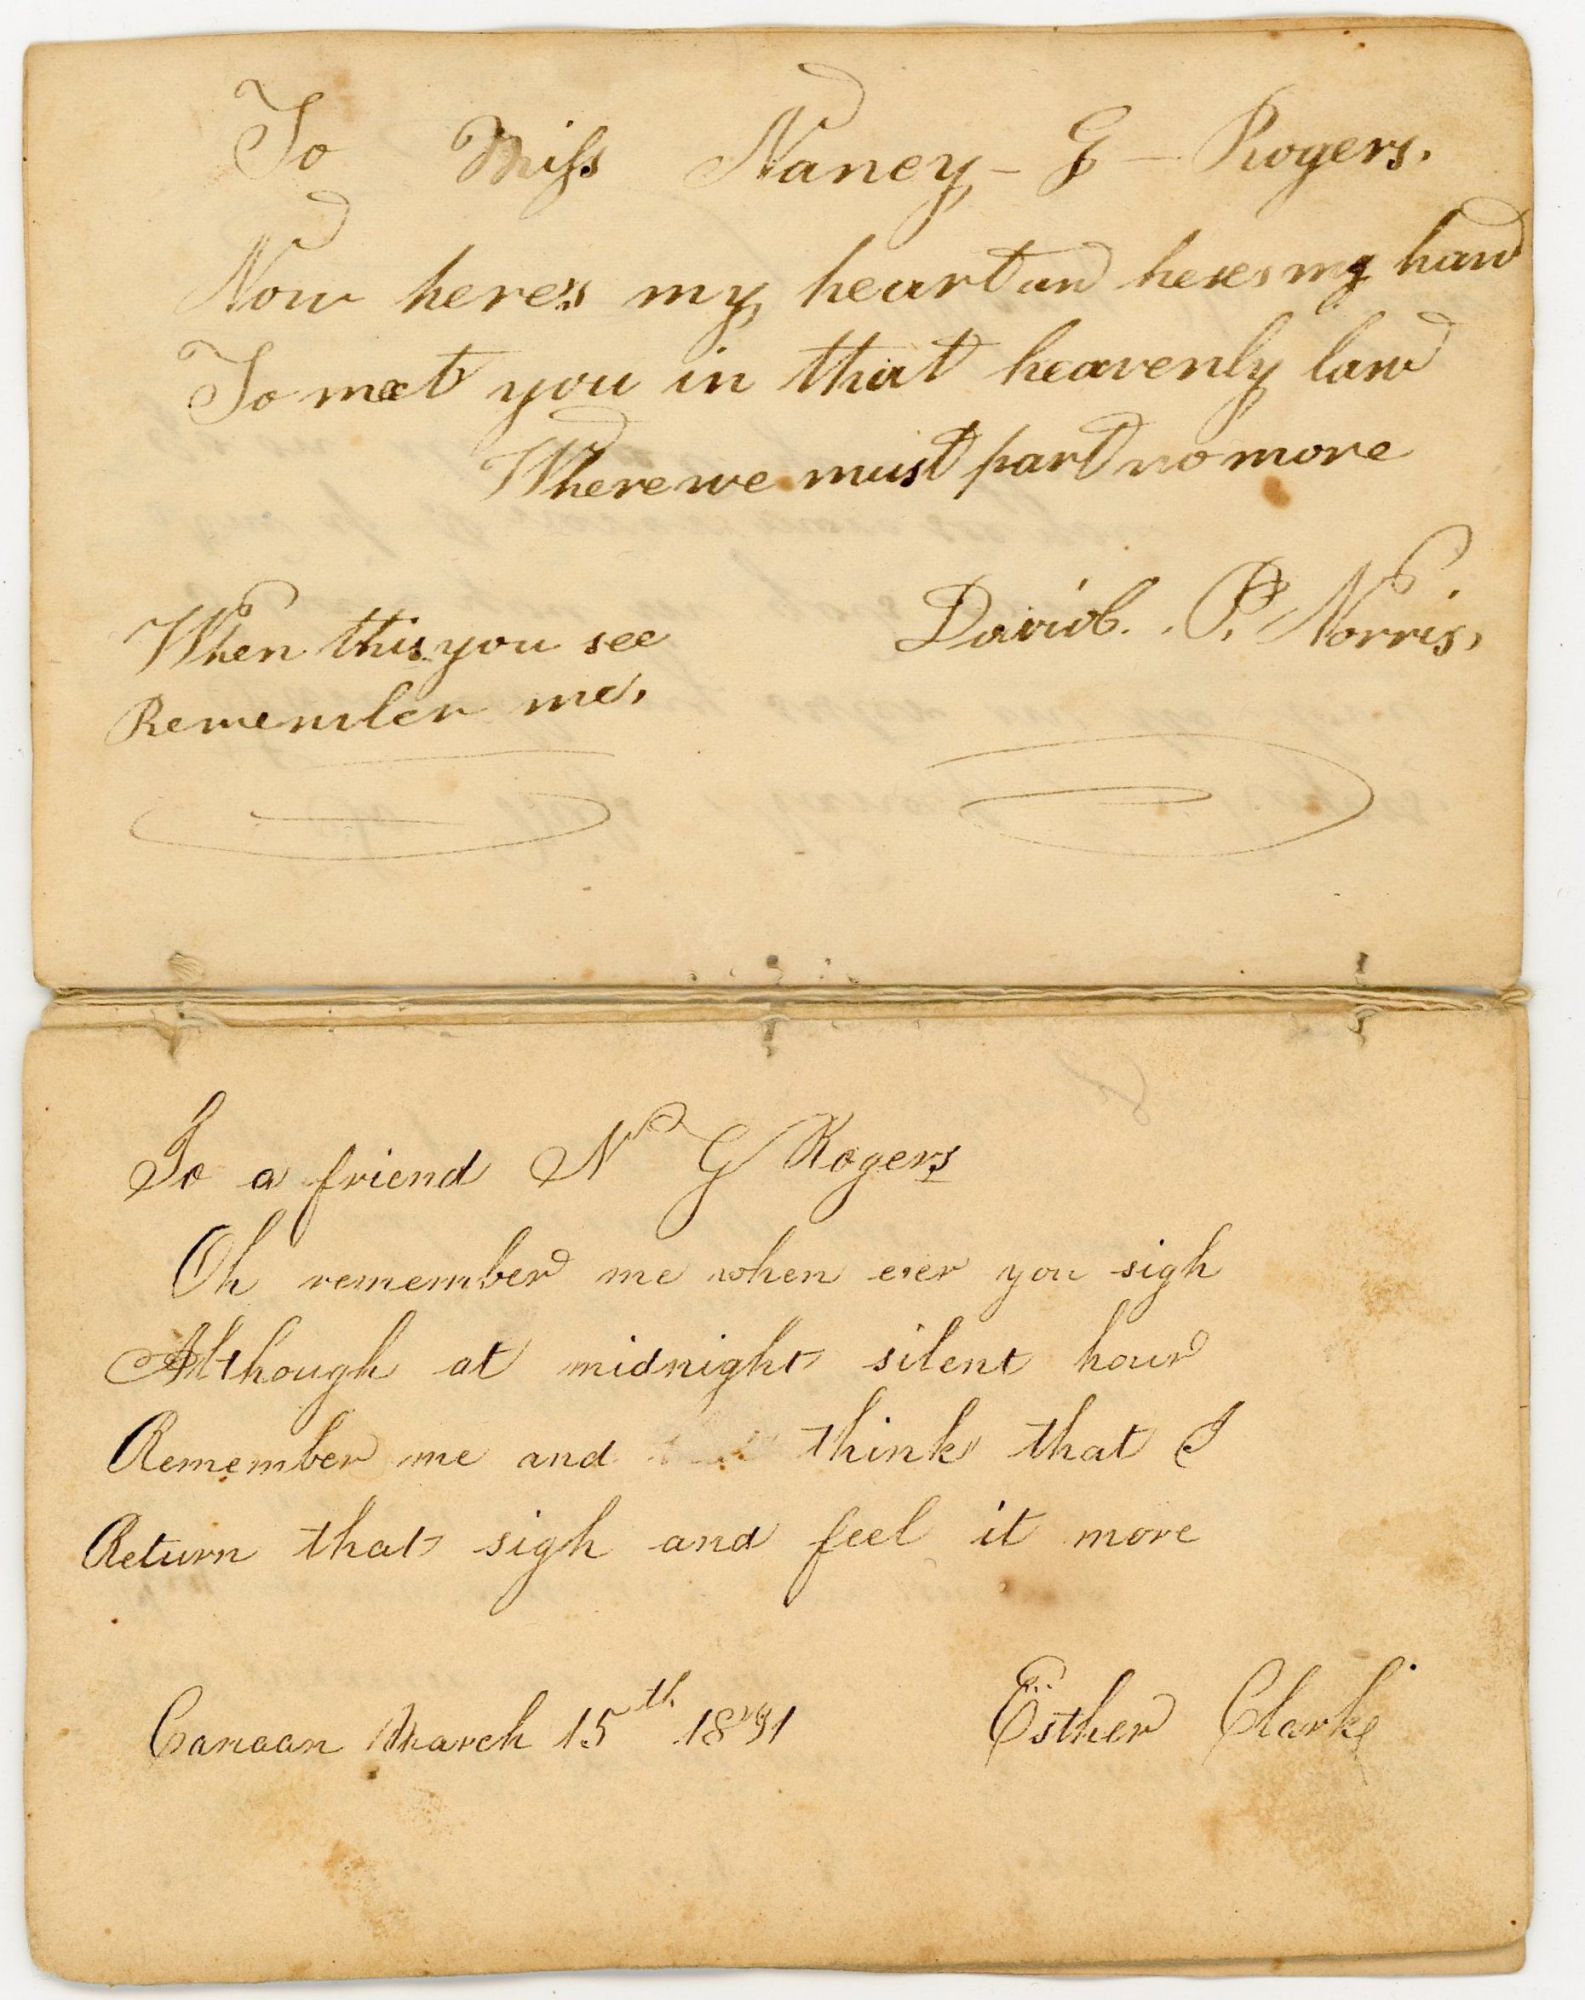 To Miſs Nancy - G - Rogers.
Now here's my heart and heres my hand
To meet you in that heavenly land
Where we must part no more
David. P. Norris,
When this you see
Remember me,
To a friend N G Rogers
Oh remember me when ever you sigh
Although at midnight silent hour
Remember me and think that I
Return that sigh and feel it more
Canaan March 15th
Esther Clarke